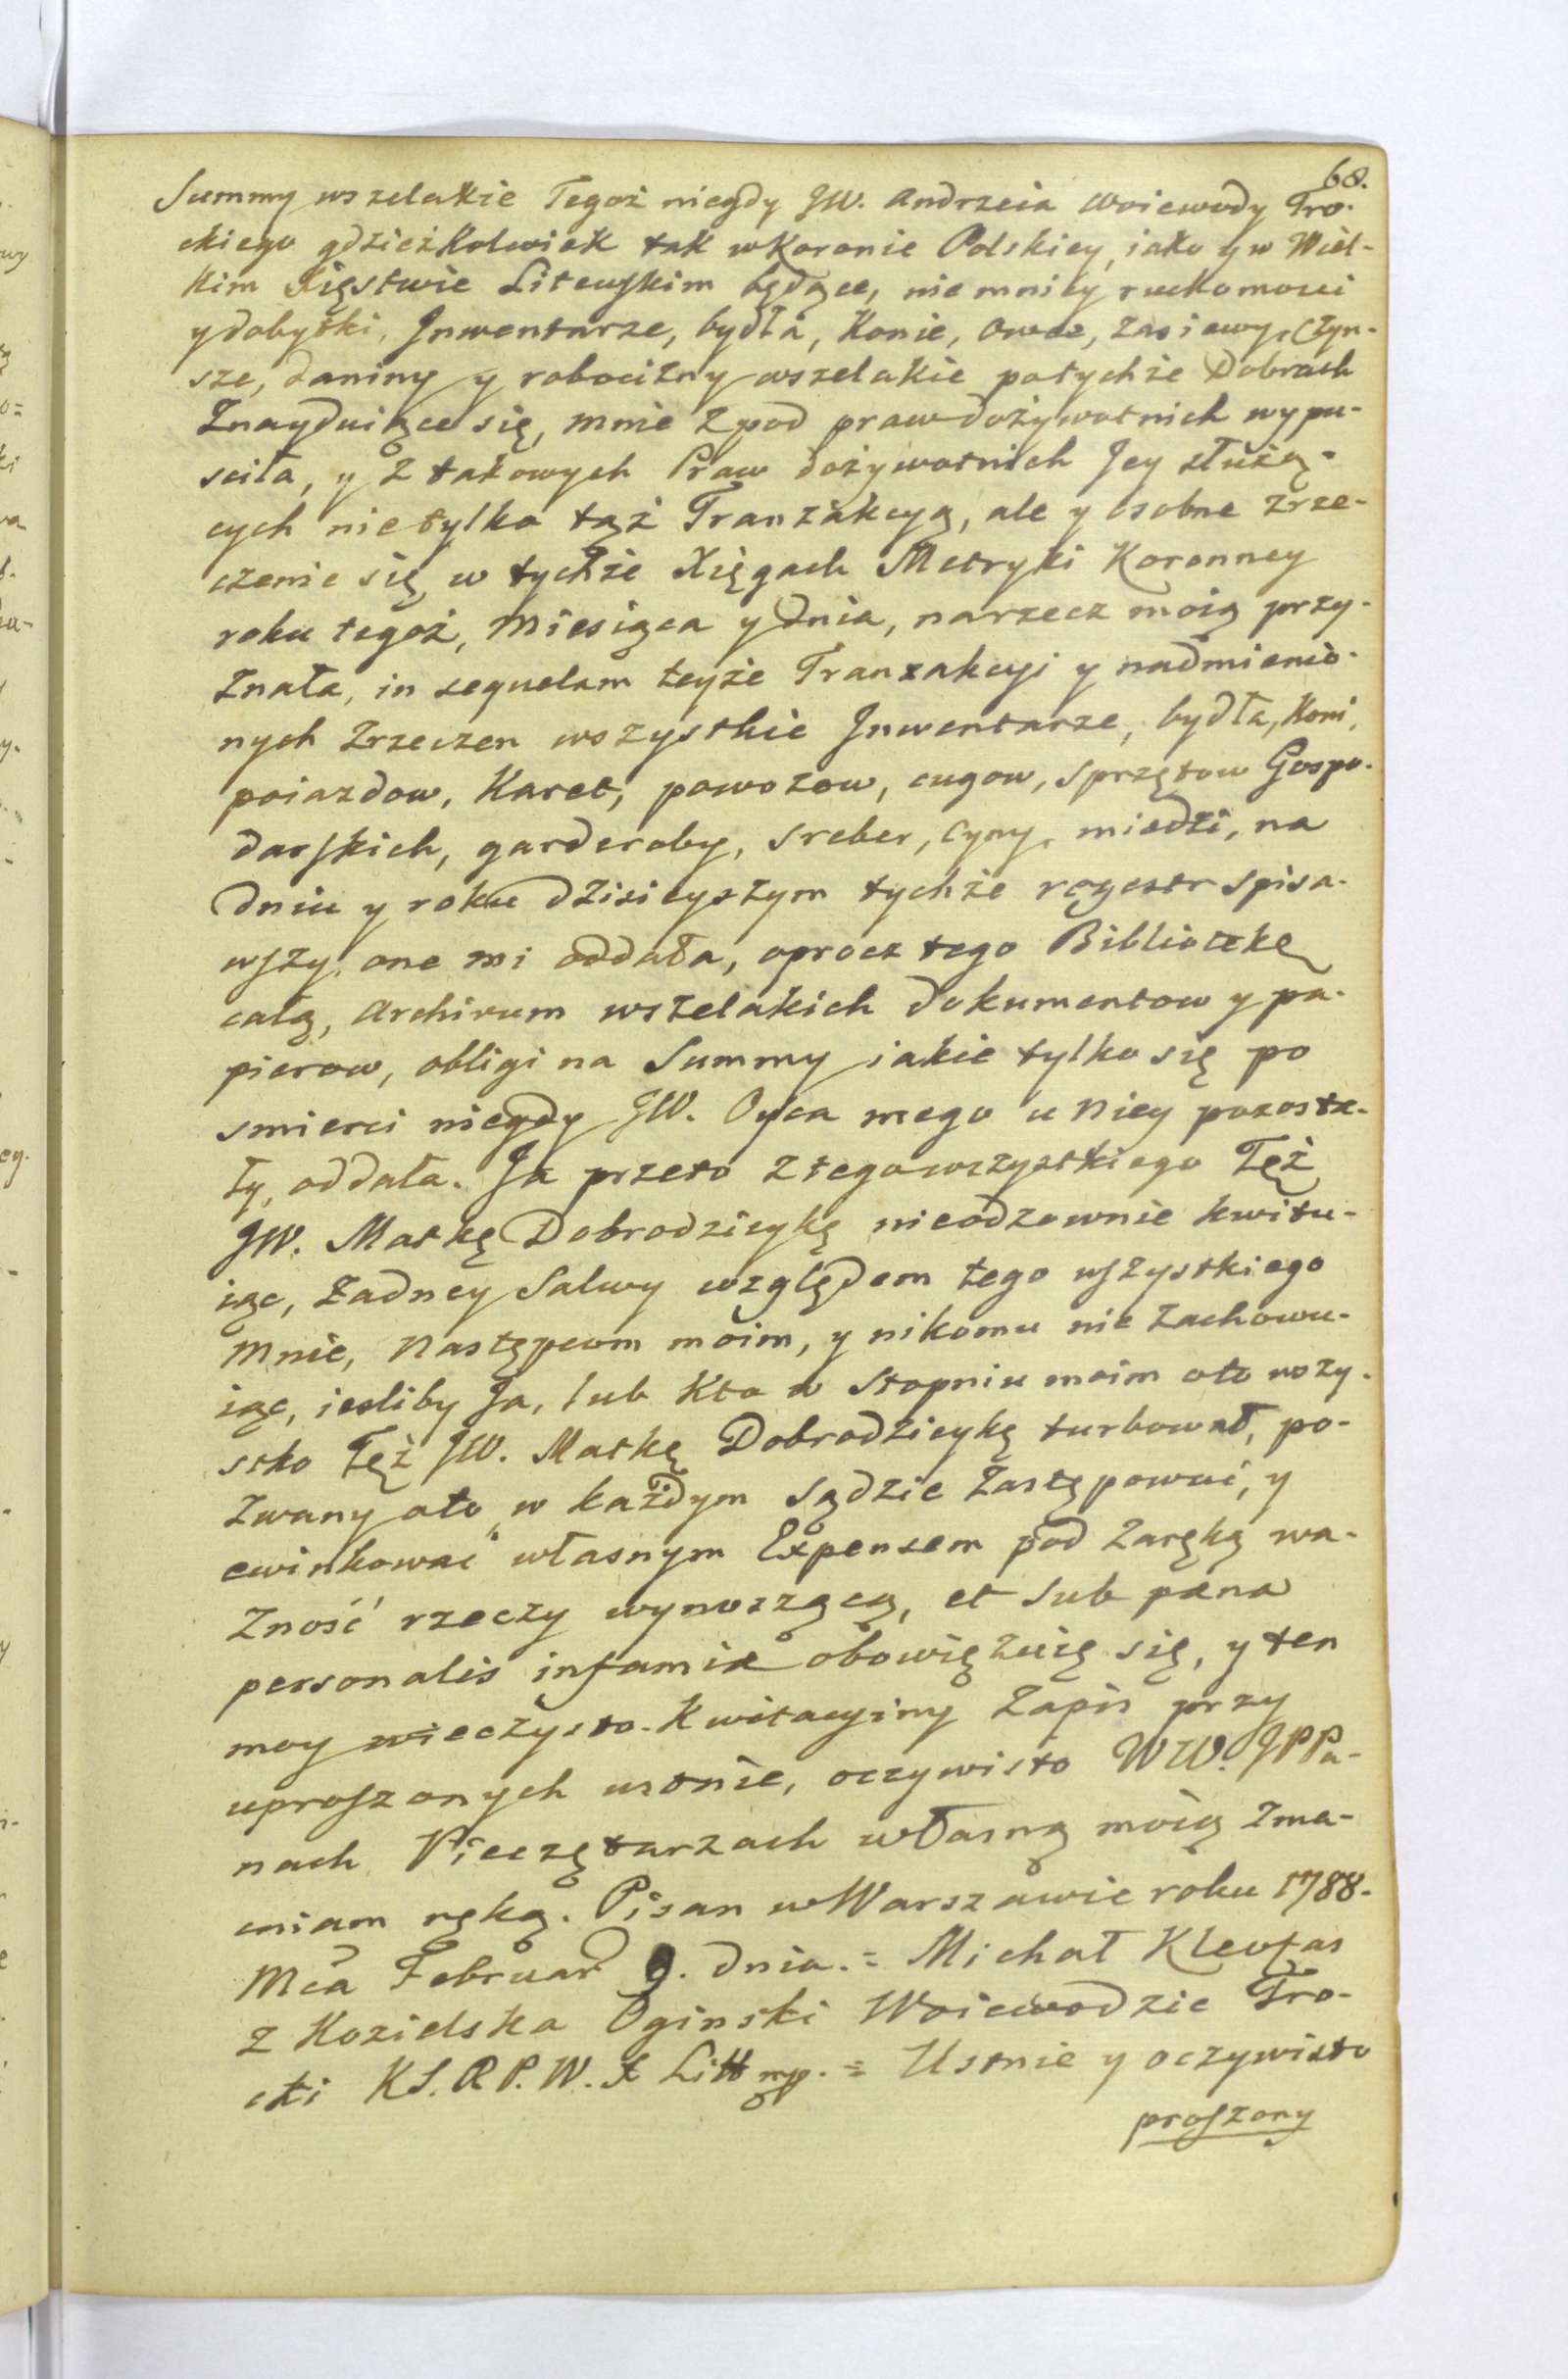 68.
Summy wszelakie Tegoż niegdy JW. Andrzeia Woiewody Tro-
ckiego gdzieżkolwiek tak w Koronie Polskiey, iako y w Wiel-
kim Xięstwie Litewskim będące, niemniey ruchomosci
y dobytki, Inwentarze, bydła, Konie, Owce, Zasiewy, Czyn-
sze, daniny y robocizny wszelakie po tychże Dobrach
Znayduiące się, mnie z pod praw dożywotnich wypu-
sciła, y z takowych Praw dożywotnich Jey służą-
cych nietylko tąż Tranzakcyą, ale y osobne zrze-
czenie się w tychże Xięgach Metryki Koronney
roku tegoż, Miesiąca y dnia, narzecz moią przy-
znała, in sequelam teyże Tranzakcyi y nadmienio-
nych Zrzeczen wszystkie Inwentarze, bydła, Koni,
poiazdow, Karet, powozow, cugow, sprzętow Gospo-
darskich, garderoby, sreber, Cyny, miedzi, na
dniu y roku dzisieyszym tychże rogestr spisa-
wszy, one mi oddała, oprocz tego Bibliotekę
całą, Archivum wszelakich dokumentow y pa-
pierow, obligi na Summy iakie tylko się po
smierci niegdy JW. Oyca mego u Niey pozosta-
ły, oddała. Ja przeto z tego wszystkiego Tęż
JW. Matkę Dobrodzieykę nieodzownie kwitu-
iąc, Żadney Salwy względem tego wszystkiego
Mnie, Następcom moim, y nikomu nie zachowu-
iąc, iesliby Ja, lub Kto w Stopniu moim oto wszy-
stko Tęż JW. Matkę Dobrodzieykę turbował, po-
zwany oto w każdym Sądzie Zastępować, y
ewinkować własnym Expensem pod Zaręką wa-
żność rzeczy wynoszącą, et sub pæna
personalis infamiæ obowięzuię się, y ten
moy wieczysto-Kwitacyiny Zapis przy
uproszonych ustnie, oczywisto WW. JPPa-
nach Pieczętarzach własną moią zma-
cniam ręką. Pisan w Warszawie roku 1788.
Mca Februar 9. dnia. = Michał Kleofas
z Kozielska Oginski Woiewodzic Tro-
cki KS. R P. W. X Litt mp. = Ustnie y oczywisto
proszony